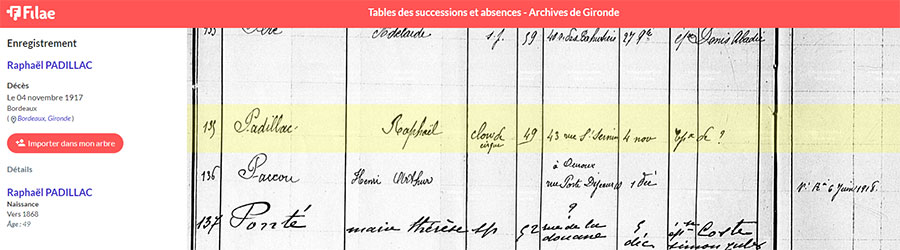 Filae
Tables des successions et absences - Archives de Gironde
Enregistrement
Raphaël PADILLAC
Décès
Le 04 novembre 1917
Bordeaux
( Bordeaux, Gironde )
Importer dans mon arbre
Détails
Raphaël PADILLAC
Naissance
Vers 1868
Âge : 49
Adelaïde s.p. 59 27 Denis Abadie
135 Padillac Raphaël clown de cirque 49 43 rue St Sernin 4 nov de ?
136 Henri Arthur à rue Porte 1 déc 6 Juin 1918
137 Ponté marie thérèse sp 52 rue de la douane 9 déc Coste